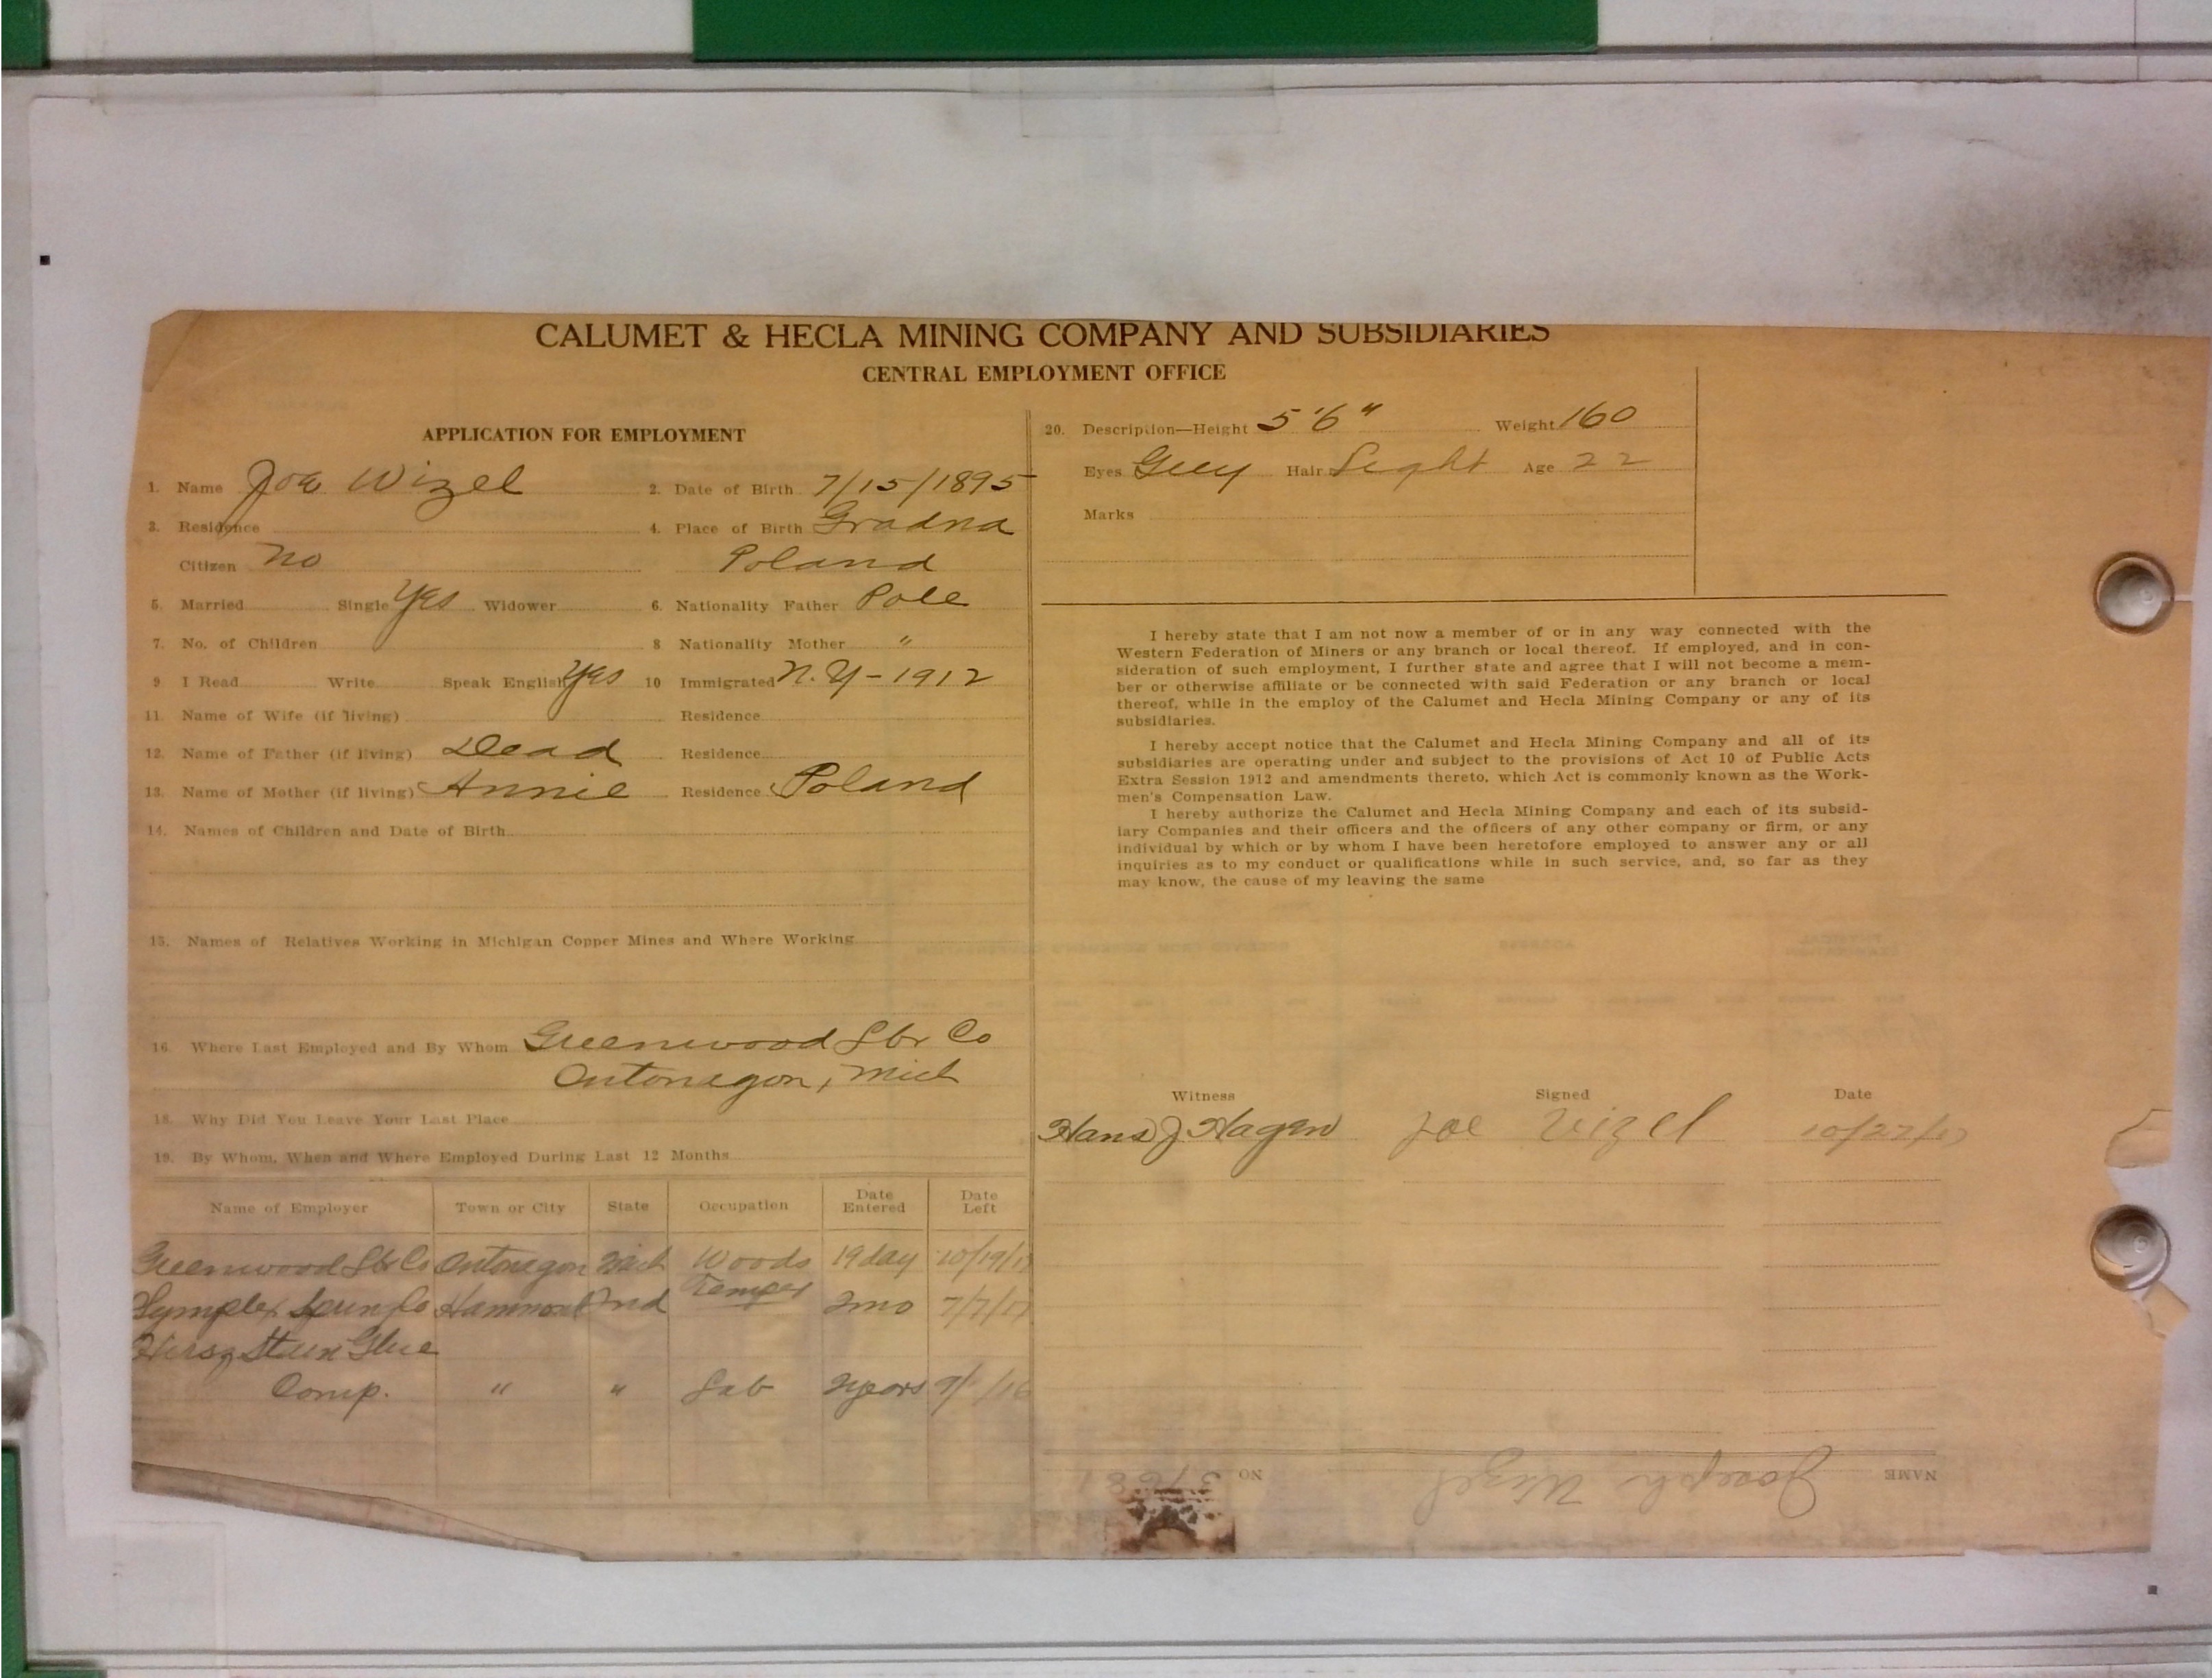 CALUMET & HECLA MINING COMPANY AND SUBSIDIARIES
CENTRAL EMPLOYMENT OFFICE
APPLICATION FOR EMPLOYMENT
1. Name Joe Wizel 2. Date of Birth 7/15/1895
3. Residence 4. Place of Birth Gradna
Citizen no Poland
5. Married Single Yes Widower 6. Nationality Father Pole
7. No. of Children 8 Nationality Mother "
9 I Read Write Speak English Yes 10 Immigrated N.Y - 1912
11. Name of Wife (if living) Residence
12. Name of Father (if living) Dead Residence
13. Name of Mother (if living) Annie Residence Poland
14. Names of Children and Date of Birth
15. Names of Relatives Working in Michigan Copper Mines and Where Working
16. Where Last Employed and By Whom Greenwood Lbr Co
Ontonagon, Mich
18. Why Did You Leave Your Last Place
19. By Whom, When and Where Employed During Last 12 Months
Name of Employer Town or City State Occupation Date Entered Date Left
Greenwood Lbr Co Ontonagon Mich Woods 19 day 10/19/17
Co Hammond Ind Temper 2mo 7/7/17
Glue
Comp. " " Lab 2 years
20. Description—Height 5'6" Weight 160
Eyes Grey Hair Light Age 22
Marks
I hereby state that I am not now a member of or in any way connected with the
Western Federation of Miners or any branch or local thereof. If employed, and in con-
sideration of such employment, I further state and agree that I will not become a mem-
ber or otherwise affiliate or be connected with said Federation or any branch or local
thereof, while in the employ of the Calumet and Hecla Mining Company or any of its
subsidiaries.
I hereby accept notice that the Calumet and Hecla Mining Company and all of its
subsidiaries are operating under and subject to the provisions of Act 10 of Public Acts
Extra Session 1912 and amendments thereto, which Act is commonly known as the Work-
men's Compensation Law.
I hereby authorize the Calumet and Hecla Mining Company and each of its subsid-
iary Companies and their officers and the officers of any other company or firm, or any
individual by which or by whom I have been heretofore employed to answer any or all
inquiries as to my conduct or qualifications while in such service, and, so far as they
may know, the cause of my leaving the same
Witness Signed Date
Hans J. Hagen Joe Vizel 10/27/17
NAME Joseph Wizel NO